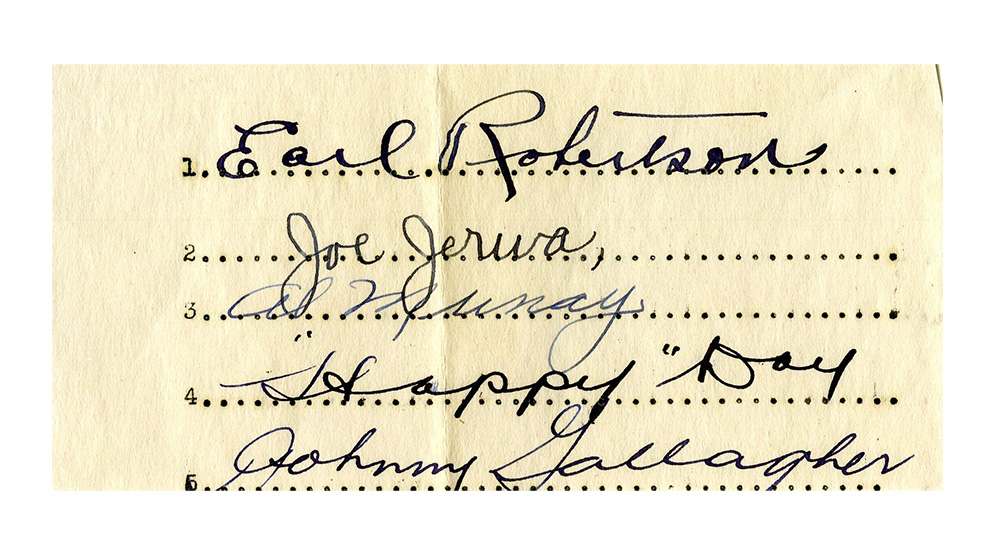 1. Earl Robertson
2. Joe Jerwa,
3. Al Murray
4. "Happy" Day
5. Johnny Gallagher